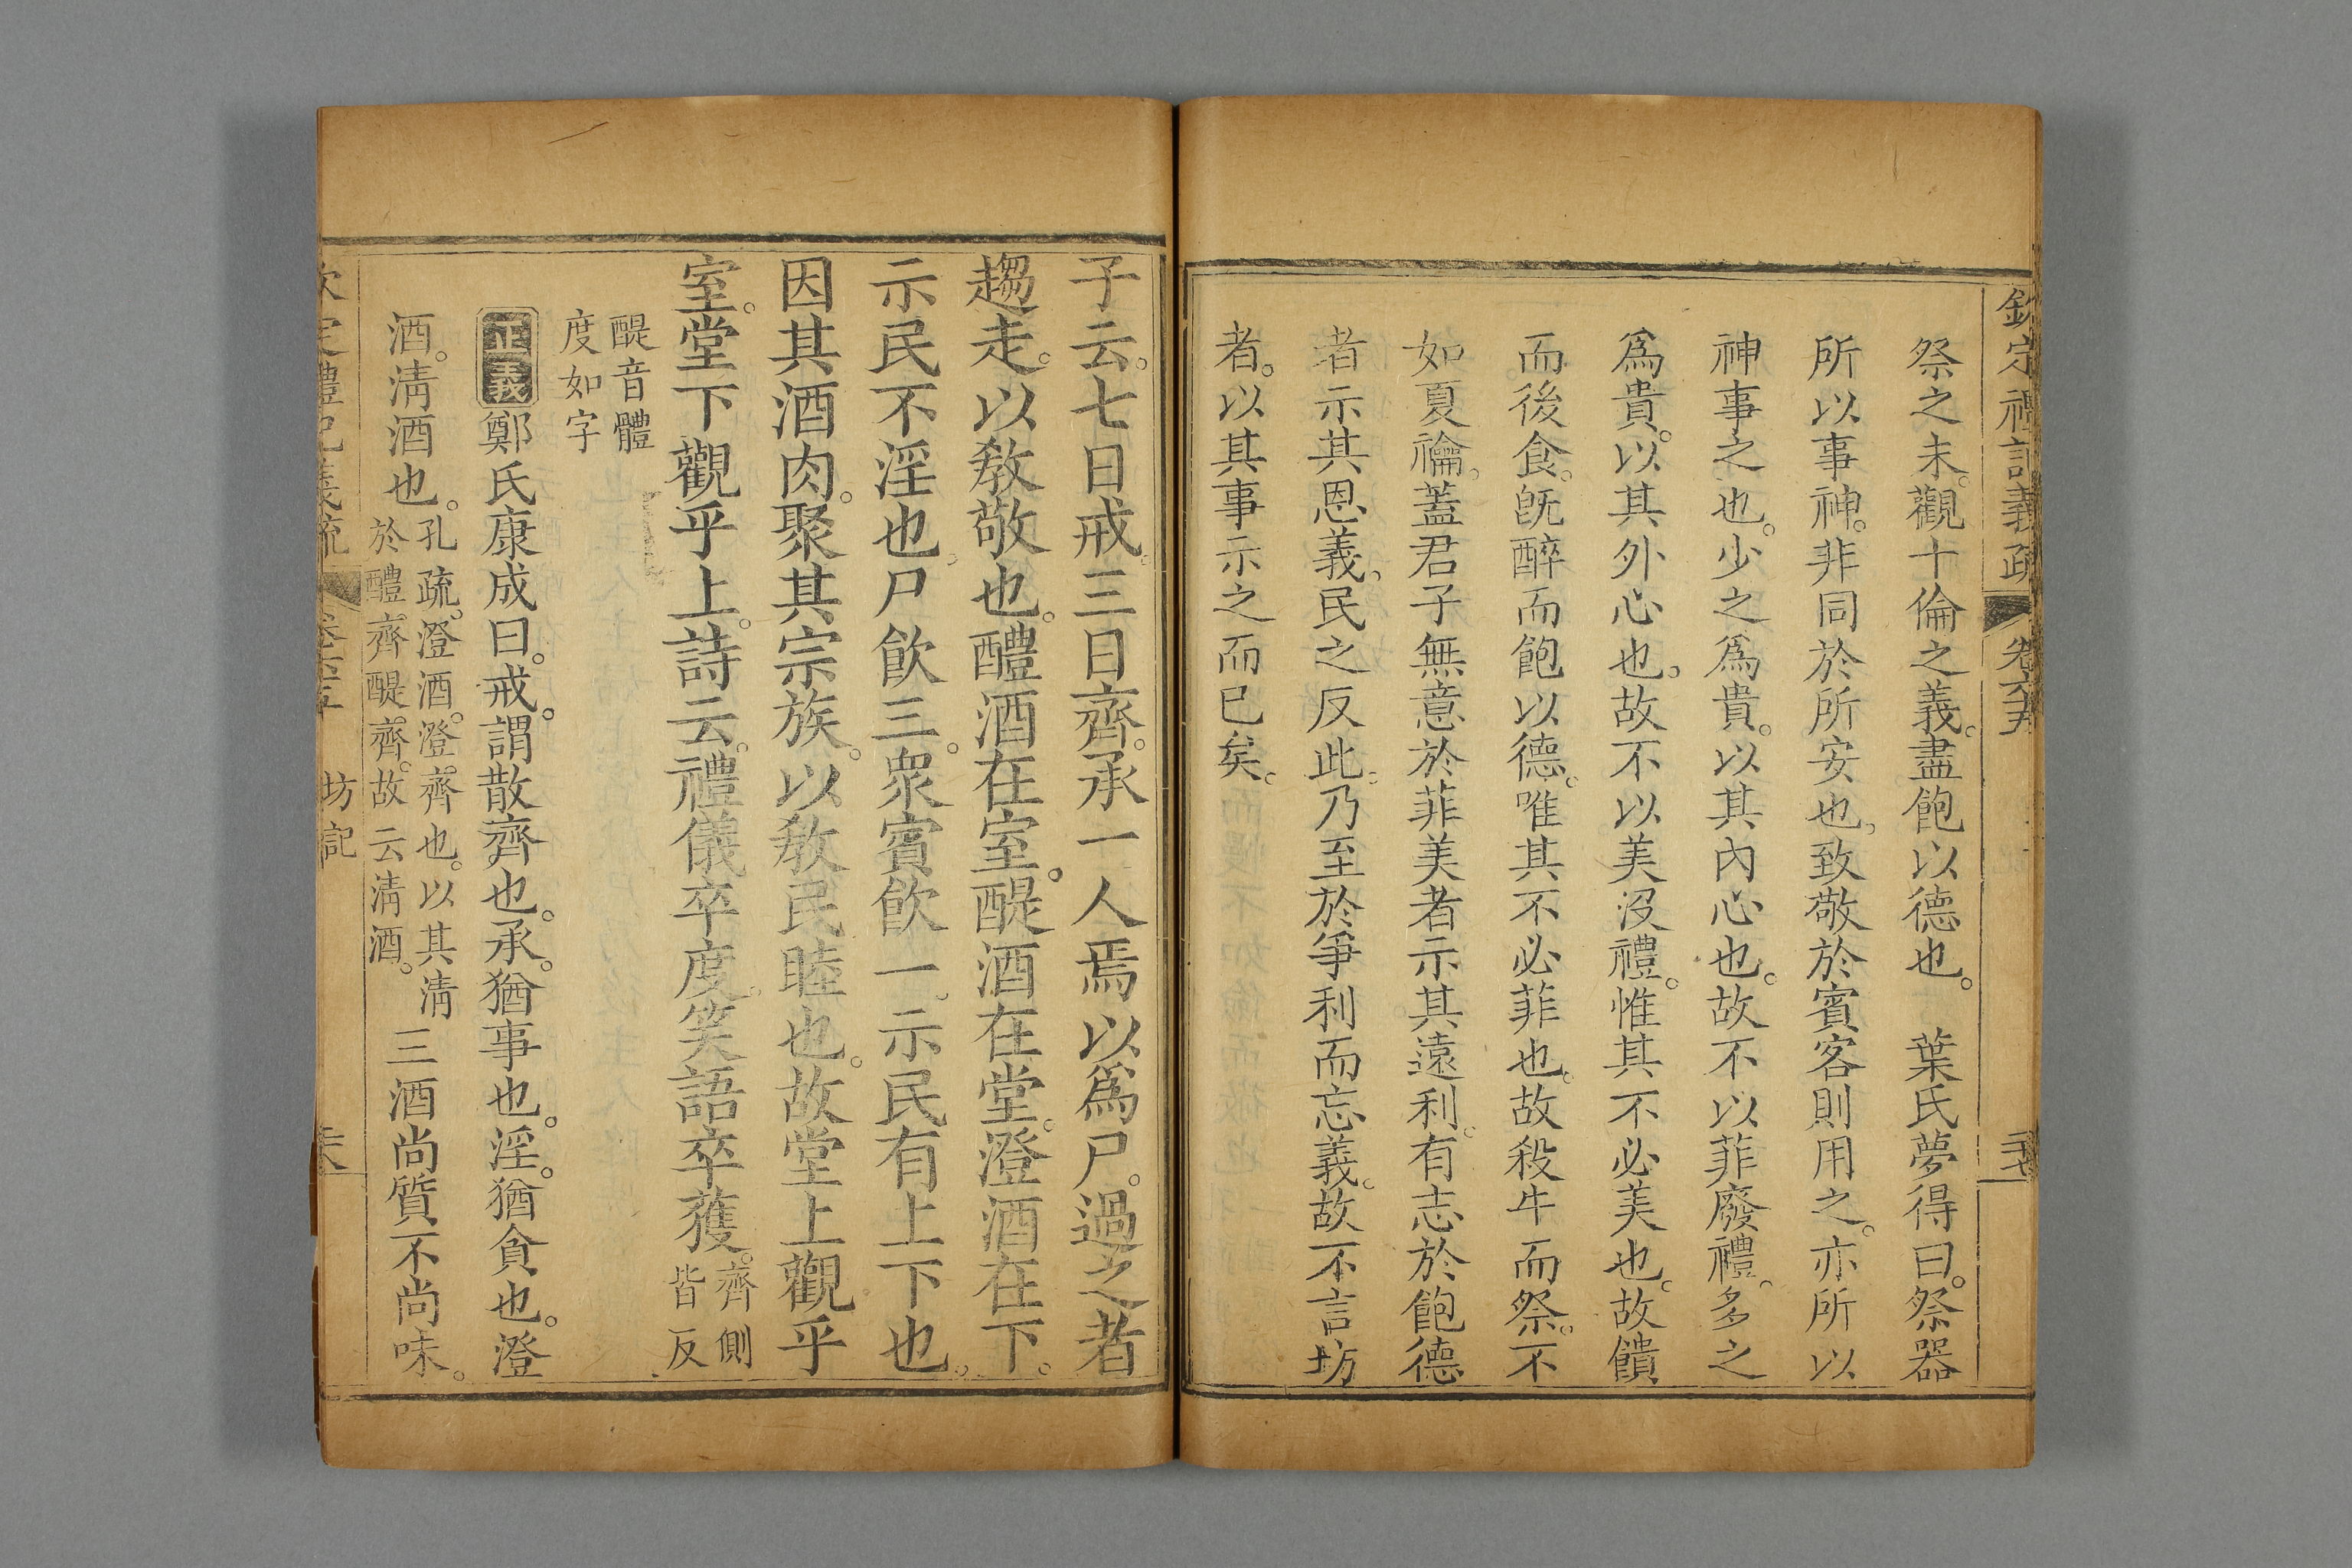 欽定禮記義疏 卷六十五
祭之末。觀十倫之義。盡飽以德也。 葉氏夢得曰。祭器
所以事神。非同於所安也。致敬於賓客則用之。亦所以
神事之也。少之爲貴。以其內心也。故不以菲廢禮。多之
爲貴。以其外心也。故不以美沒禮。惟其不必美也。故饋
而後食。旣醉而飽以德。唯其不必菲也。故殺牛而祭。不
如夏禴。蓋君子無意於菲美者示其遠利。有志於飽德
者示其恩義。民之反此。乃至於爭利而忘義。故不言坊
者。以其事示之而已矣。
子云。七日戒。三日齊。承一人焉以爲尸。過之者
趨走。以敎敬也。醴酒在室。醍酒在堂。澄酒在下。
示民不淫也。尸飮三。衆賓飮一。示民有上下也。
因其酒肉。聚其宗族。以敎民睦也。故堂上觀乎
室。堂下觀乎上。詩云。禮儀卒度。笑語卒獲。齊側
皆反
醍音體
度如字
正義鄭氏康成曰。戒。謂散齊也。承。猶事也。淫。猶貪也。澄
酒。淸酒也。孔疏。澄酒。澄齊也。以其淸
於醴齊醍齊。故云淸酒。三酒尚質不尚味。
欽定禮記義疏 坊記